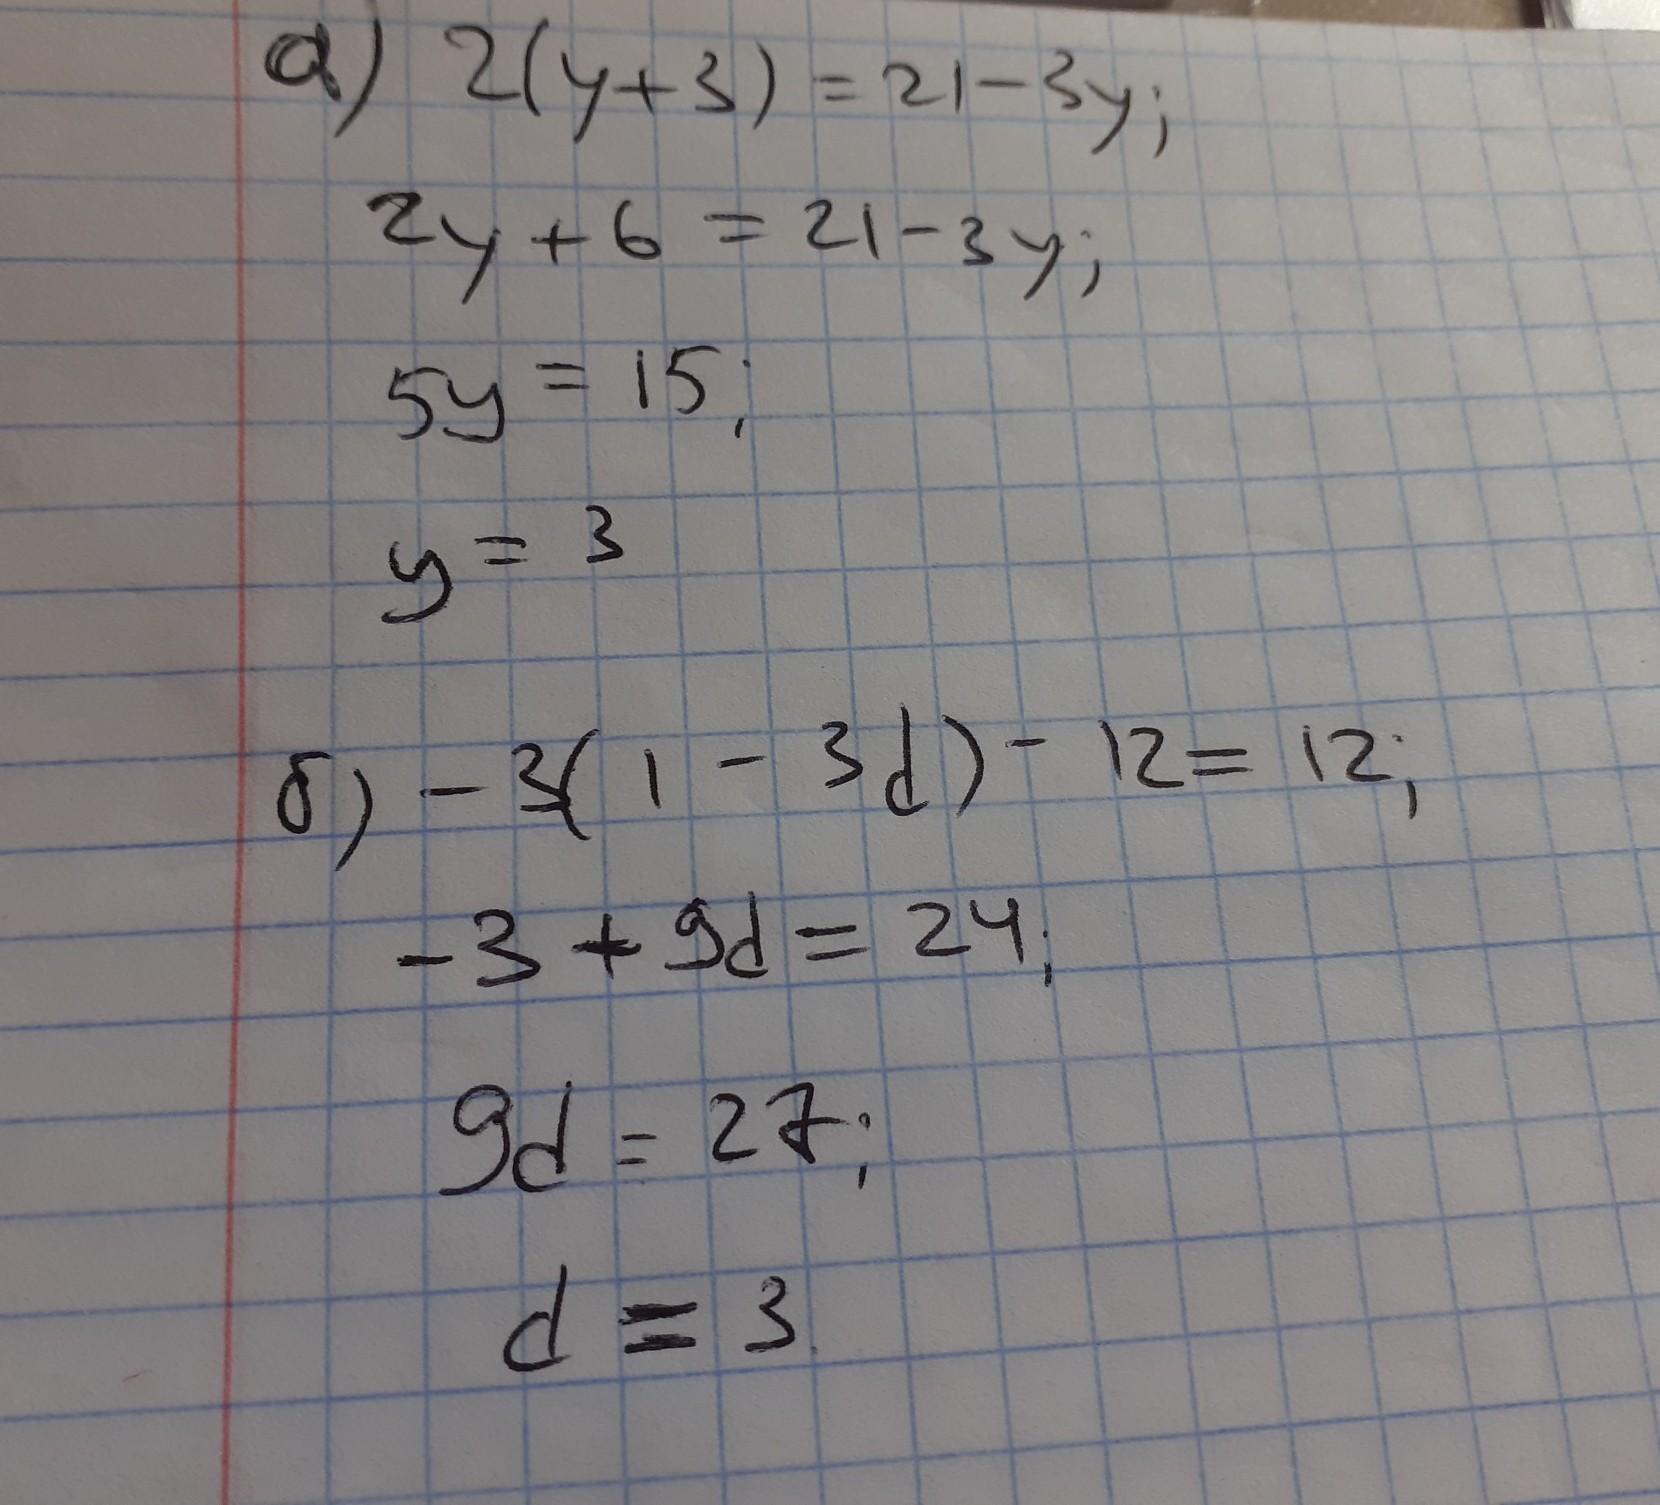 а) 2(y+3) = 21-3y;
2y + 6 = 21-3y;
5y = 15;
y = 3
б) -3(1 - 3d) - 12 = 12;
-3 + 9d = 24;
9d = 27;
d = 3